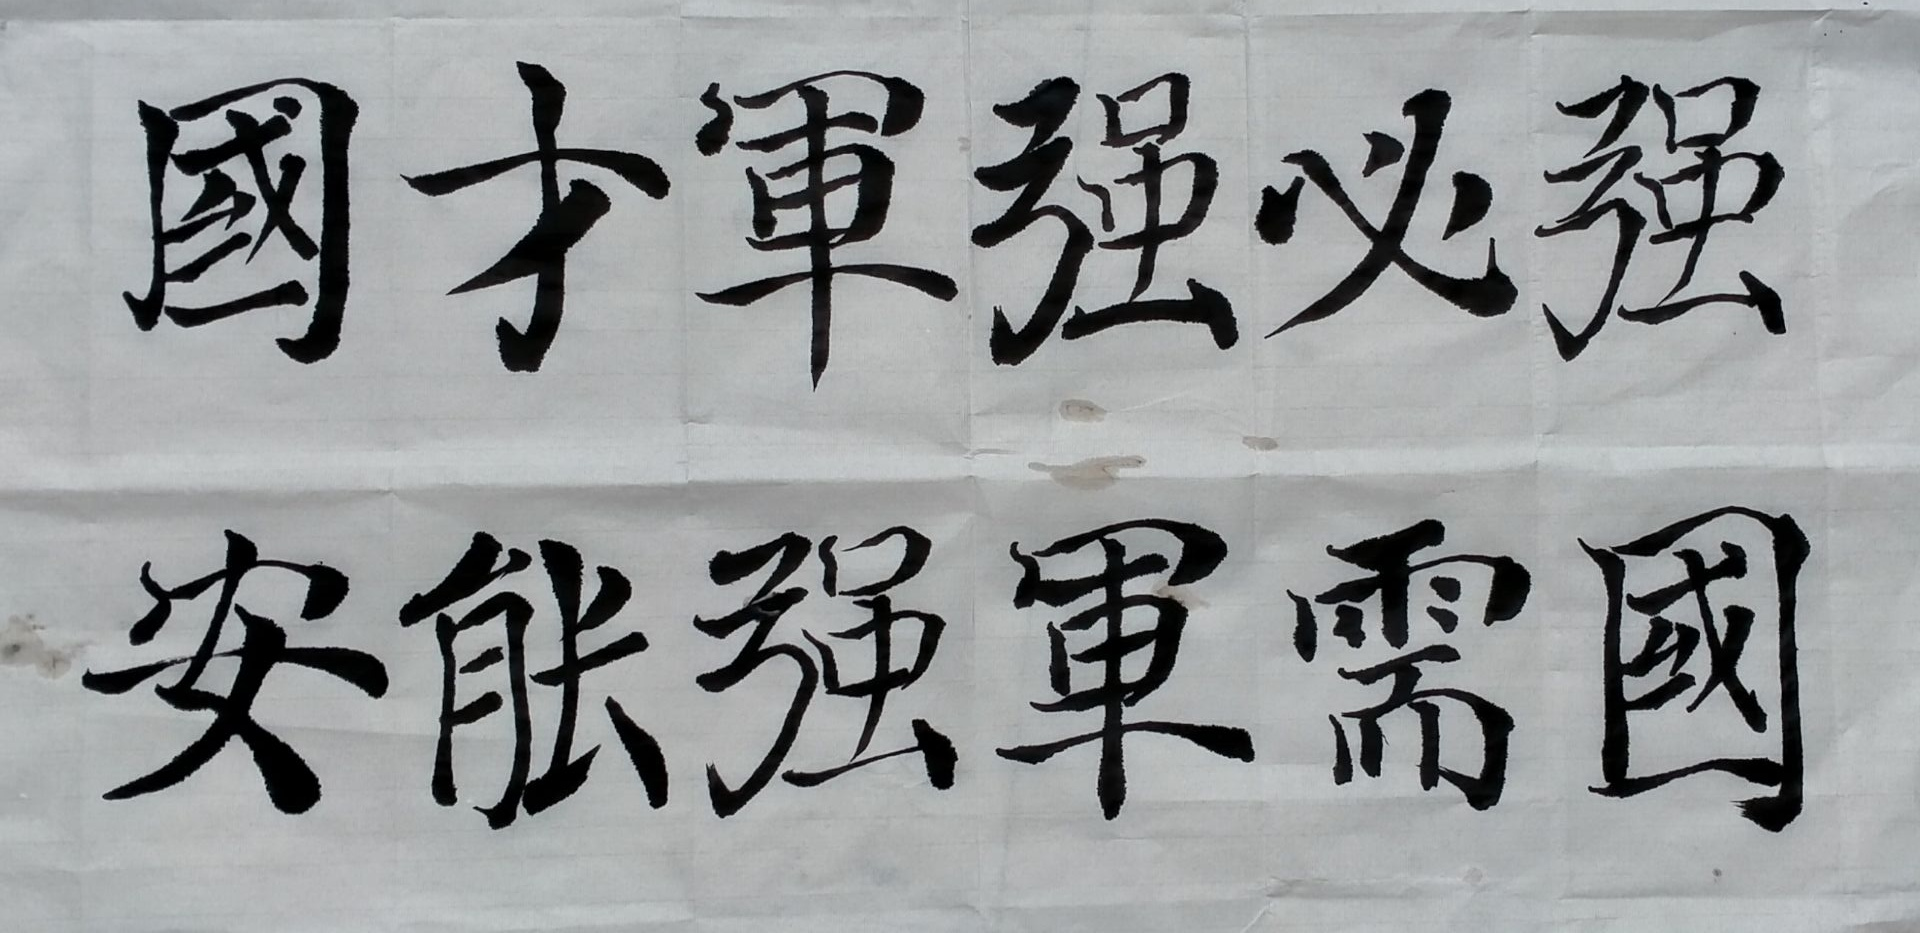 强國
必需
强軍
軍强
才能
國安